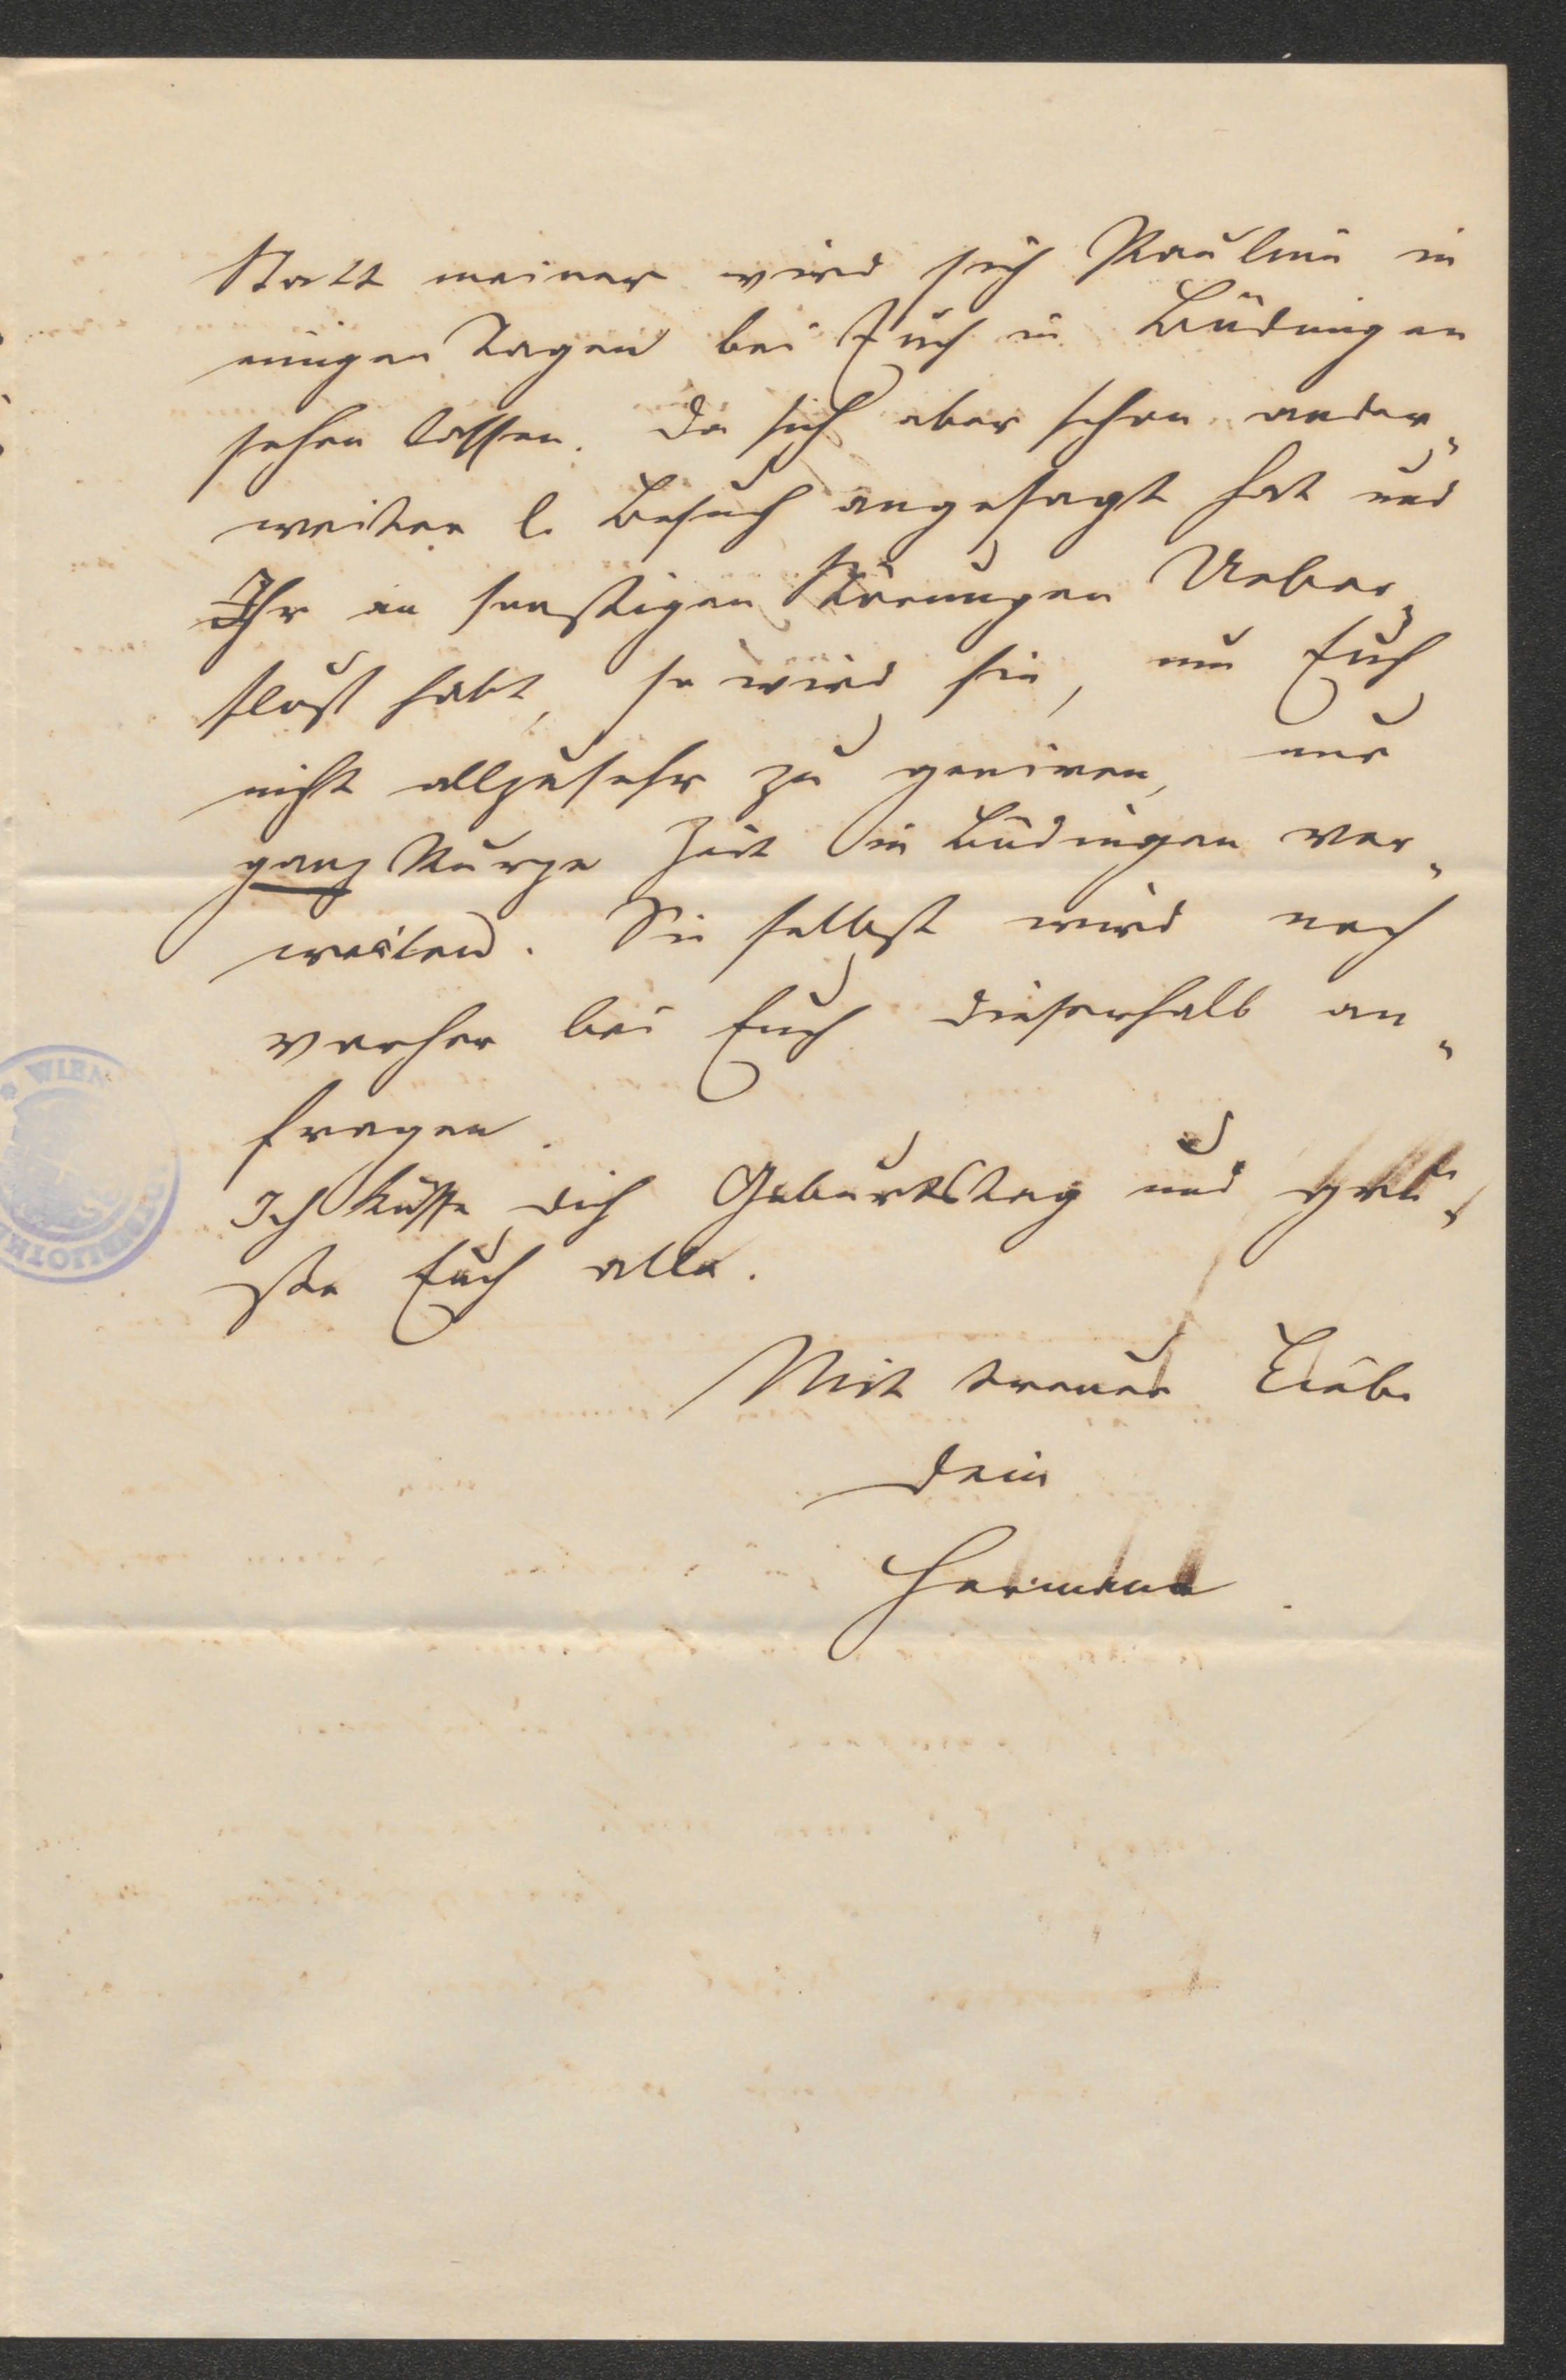 Statt meiner wird sich Pauline in
einigen Tagen bei Euch in Büdingen
sehen lassen. Da sich aber schon ander„
weiter l. Besuch angesagt hat und
Ihr an sonstigen Störungen Ueber„
fluß habt, so wird sie, um Euch
nicht allzusehr zu geniren, nur
ganz kurze Zeit in Büdingen ver„
weilen. Sie selbst wird noch
vorher bei Euch dieserhalb an„
fragen.
Ich küsse dich Geburtstag und grü„
ße Euch alle.
Mit treuer Liebe
Dein
Hermann.
WIEN